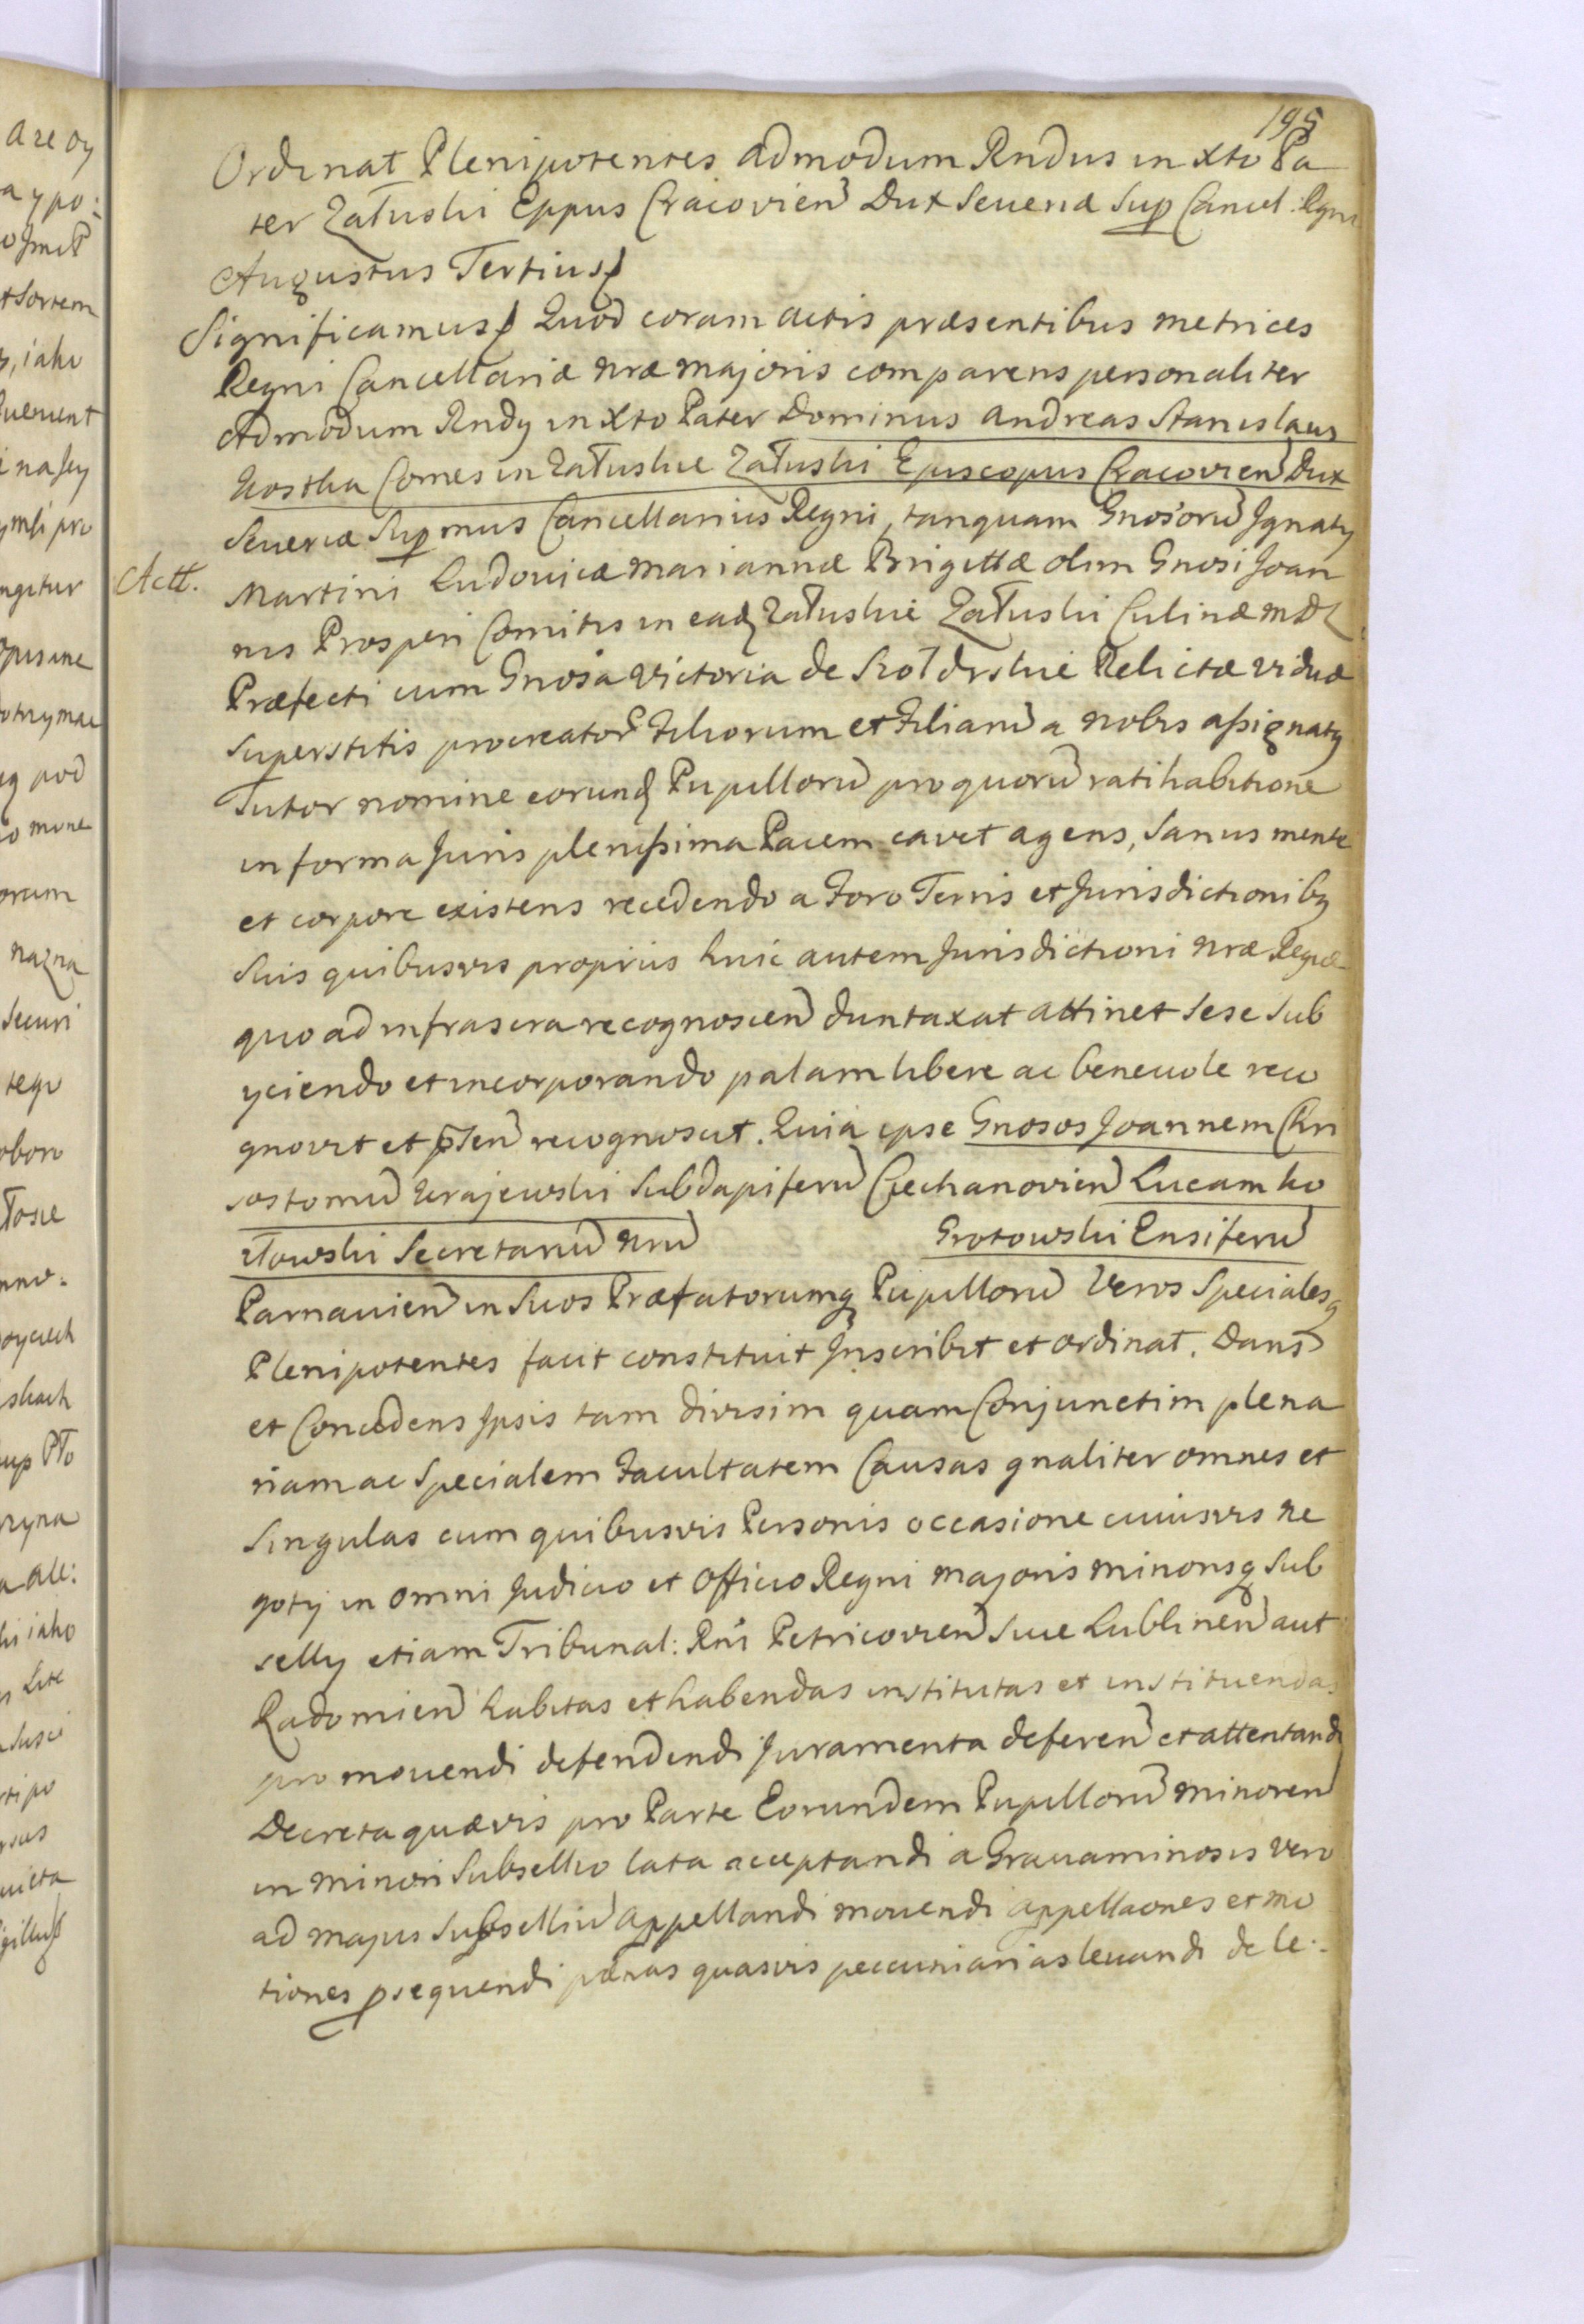 195
Ordinat Plenipotentes admodum Rndus in Xto Pa
ter Załuski Eppus Cracovien Dux Severiæ Sup Cancel. Rgni
Augustus Tertius
Significamus Quod coram actis præsentibus metrices
Regni Cancellariæ nræ majoris comparens personaliter
Admodum Rndy in Xto Pater Dominus Andreas Stanislaus
Kostka Comes in Załuskie Załuski Episcopus Cracovien Dux
Severiæ Supmus Cancellarius Regni, tanquam Gnosoru Ignaty
Actt.
Martini Ludovicæ Mariannæ Brigittæ olim Gnosi Joan
nis Prosperi Comitis in eadq Załuskie Załuski Culinæ MDL
Præfecti cum Gnosa Victoria de Szołdrskie Relictæ Viduæ
superstitis procreator Filiorum et Filiaru a nobis assignaty
Tutor nomine eorundq Pupilloru pro quoru ratihabitione
in forma Juris plenissima Pacem cavet agens, Sanus mente
et corpore existens recedendo a Foro Terris et Jurisdictioniby
Suis quibusvis propriis huic autem Jurisdictioni nræ Regiæ
quo ad infrascra recognoscen duntaxat attinet sese sub
yciendo et incorporando palam libere ac benevole reco
gnovit et pten recognoscit. Quia ipse Gnosos Joannem Chri
sostomu Krajewski Subdapiferu Ciechanovien Lucam Ko
złowski Secretariu nru Grotowski Ensiferu
Parnavien in Suos Præfatorumq Pupilloru Veros Specialesq
Plenipotentes facit constituit Inscribit et ordinat. Dans
et Concedens Ipsis tam divisim quam Conjunctim plena
riam ac Specialem Facultatem Causas gnaliter omnes et
Singulas cum quibusvis Personis occasione cuiusvis ne
goty in omni Judicio et Officio Regni majoris minorisq Sub
selly etiam Tribunal: Rni Petricovien sive Lublinen aut
Radomien habitas et habendas institutas et instituendas
promovendi defendendi Juramenta deferen et attentandi
Decreta quævis pro Parte Eorundem Pupilloru minoren
in minori Subsellio lata acceptandi a Gravaminosis vero
ad majus Subselliu appellandi movendi appellaones et mo
tiones psequendi pænas quasvis peccuniarias levandi de le: